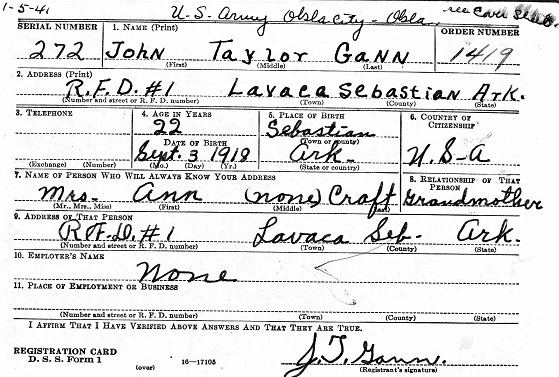 1-5-41 U.S. Army Okla City - Okla.
SERIAL NUMBER 1. NAME (Print) ORDER NUMBER
272 John Taylor Gann 1419
(First) (Middle) (Last)
2. ADDRESS (Print)
R.F.D. #1 Lavaca Sebastian Ark.
(Number and street or R. F. D. number) (Town) (County) (State)
3. TELEPHONE 4. AGE IN YEARS 5. PLACE OF BIRTH 6. COUNTRY OF CITIZENSHIP
22 Sebastian
DATE OF BIRTH (Town or county)
Sept. 3 1918 Ark- U.S-A
(Exchange) (Number) (Mo.) (Day) (Yr.) (State or country)
7. NAME OF PERSON WHO WILL ALWAYS KNOW YOUR ADDRESS 8. RELATIONSHIP OF THAT PERSON
Mrs- Ann (none) Craft Grandmother
(Mr., Mrs., Miss) (First) (Middle) (Last)
9. ADDRESS OF THAT PERSON
R.F.D. #1 Lavaca Seb- Ark.
(Number and street or R. F. D. number) (Town) (County) (State)
10. EMPLOYER'S NAME
None
11. PLACE OF EMPLOYMENT OR BUSINESS
(Number and street or R. F. D. number) (Town) (County) (State)
I AFFIRM THAT I HAVE VERIFIED ABOVE ANSWERS AND THAT THEY ARE TRUE.
REGISTRATION CARD
D. S. S. Form 1 (over) 16—17105 J. T. Gann.
(Registrant's signature)